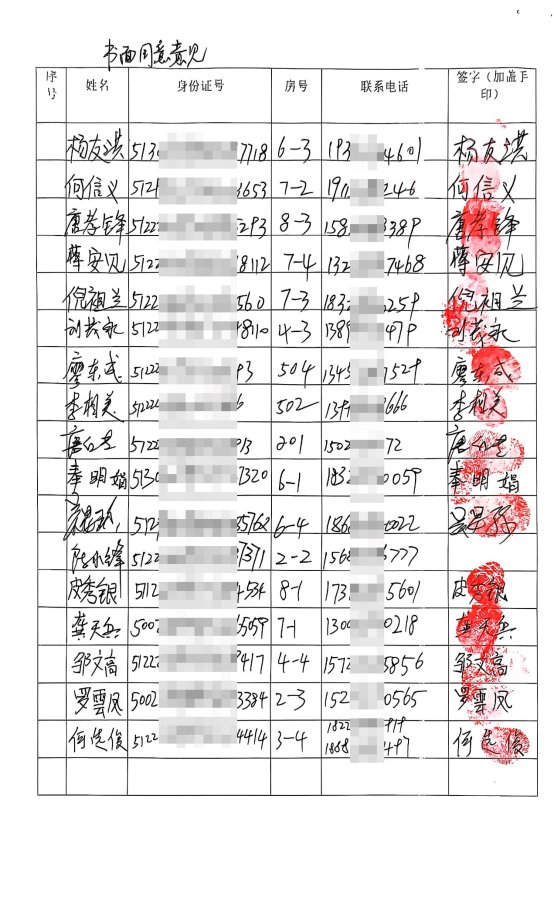 书面同意意见
序号 姓名 身份证号 房号 联系电话 签字（加盖手印）
杨友洪 513 7118 6-3 193 4601 杨友洪
何信义 512 3653 7-2 191 246 何信义
唐孝锋 5122 293 8-3 158 3389 唐孝锋
蒋安见 5122 18112 7-4 132 7468 蒋安见
倪祖兰 5122 560 7-3 183 259 倪祖兰
刘茂永 5122 18110 4-3 1389 479 刘茂永
廖东武 5122 93 504 1345 7529 廖东武
李相美 5122 6 502 139 3666 李相美
5122 13 201 1502 72
奉明娟 5130 7320 6-1 183 0059 奉明娟
512 35768 6-4 186 0022
5122 7371 2-2 156 5777
皮秀银 512 4534 8-1 173 5601 皮秀银
龚天兵 5002 5059 7-1 1300 0218 龚天兵
邹文高 5122 9417 4-4 157 5856 邹文高
罗云凤 5002 3384 2-3 152 0565 罗云凤
何先俊 5122 4414 3-4 1822 919 1888 497 何先俊